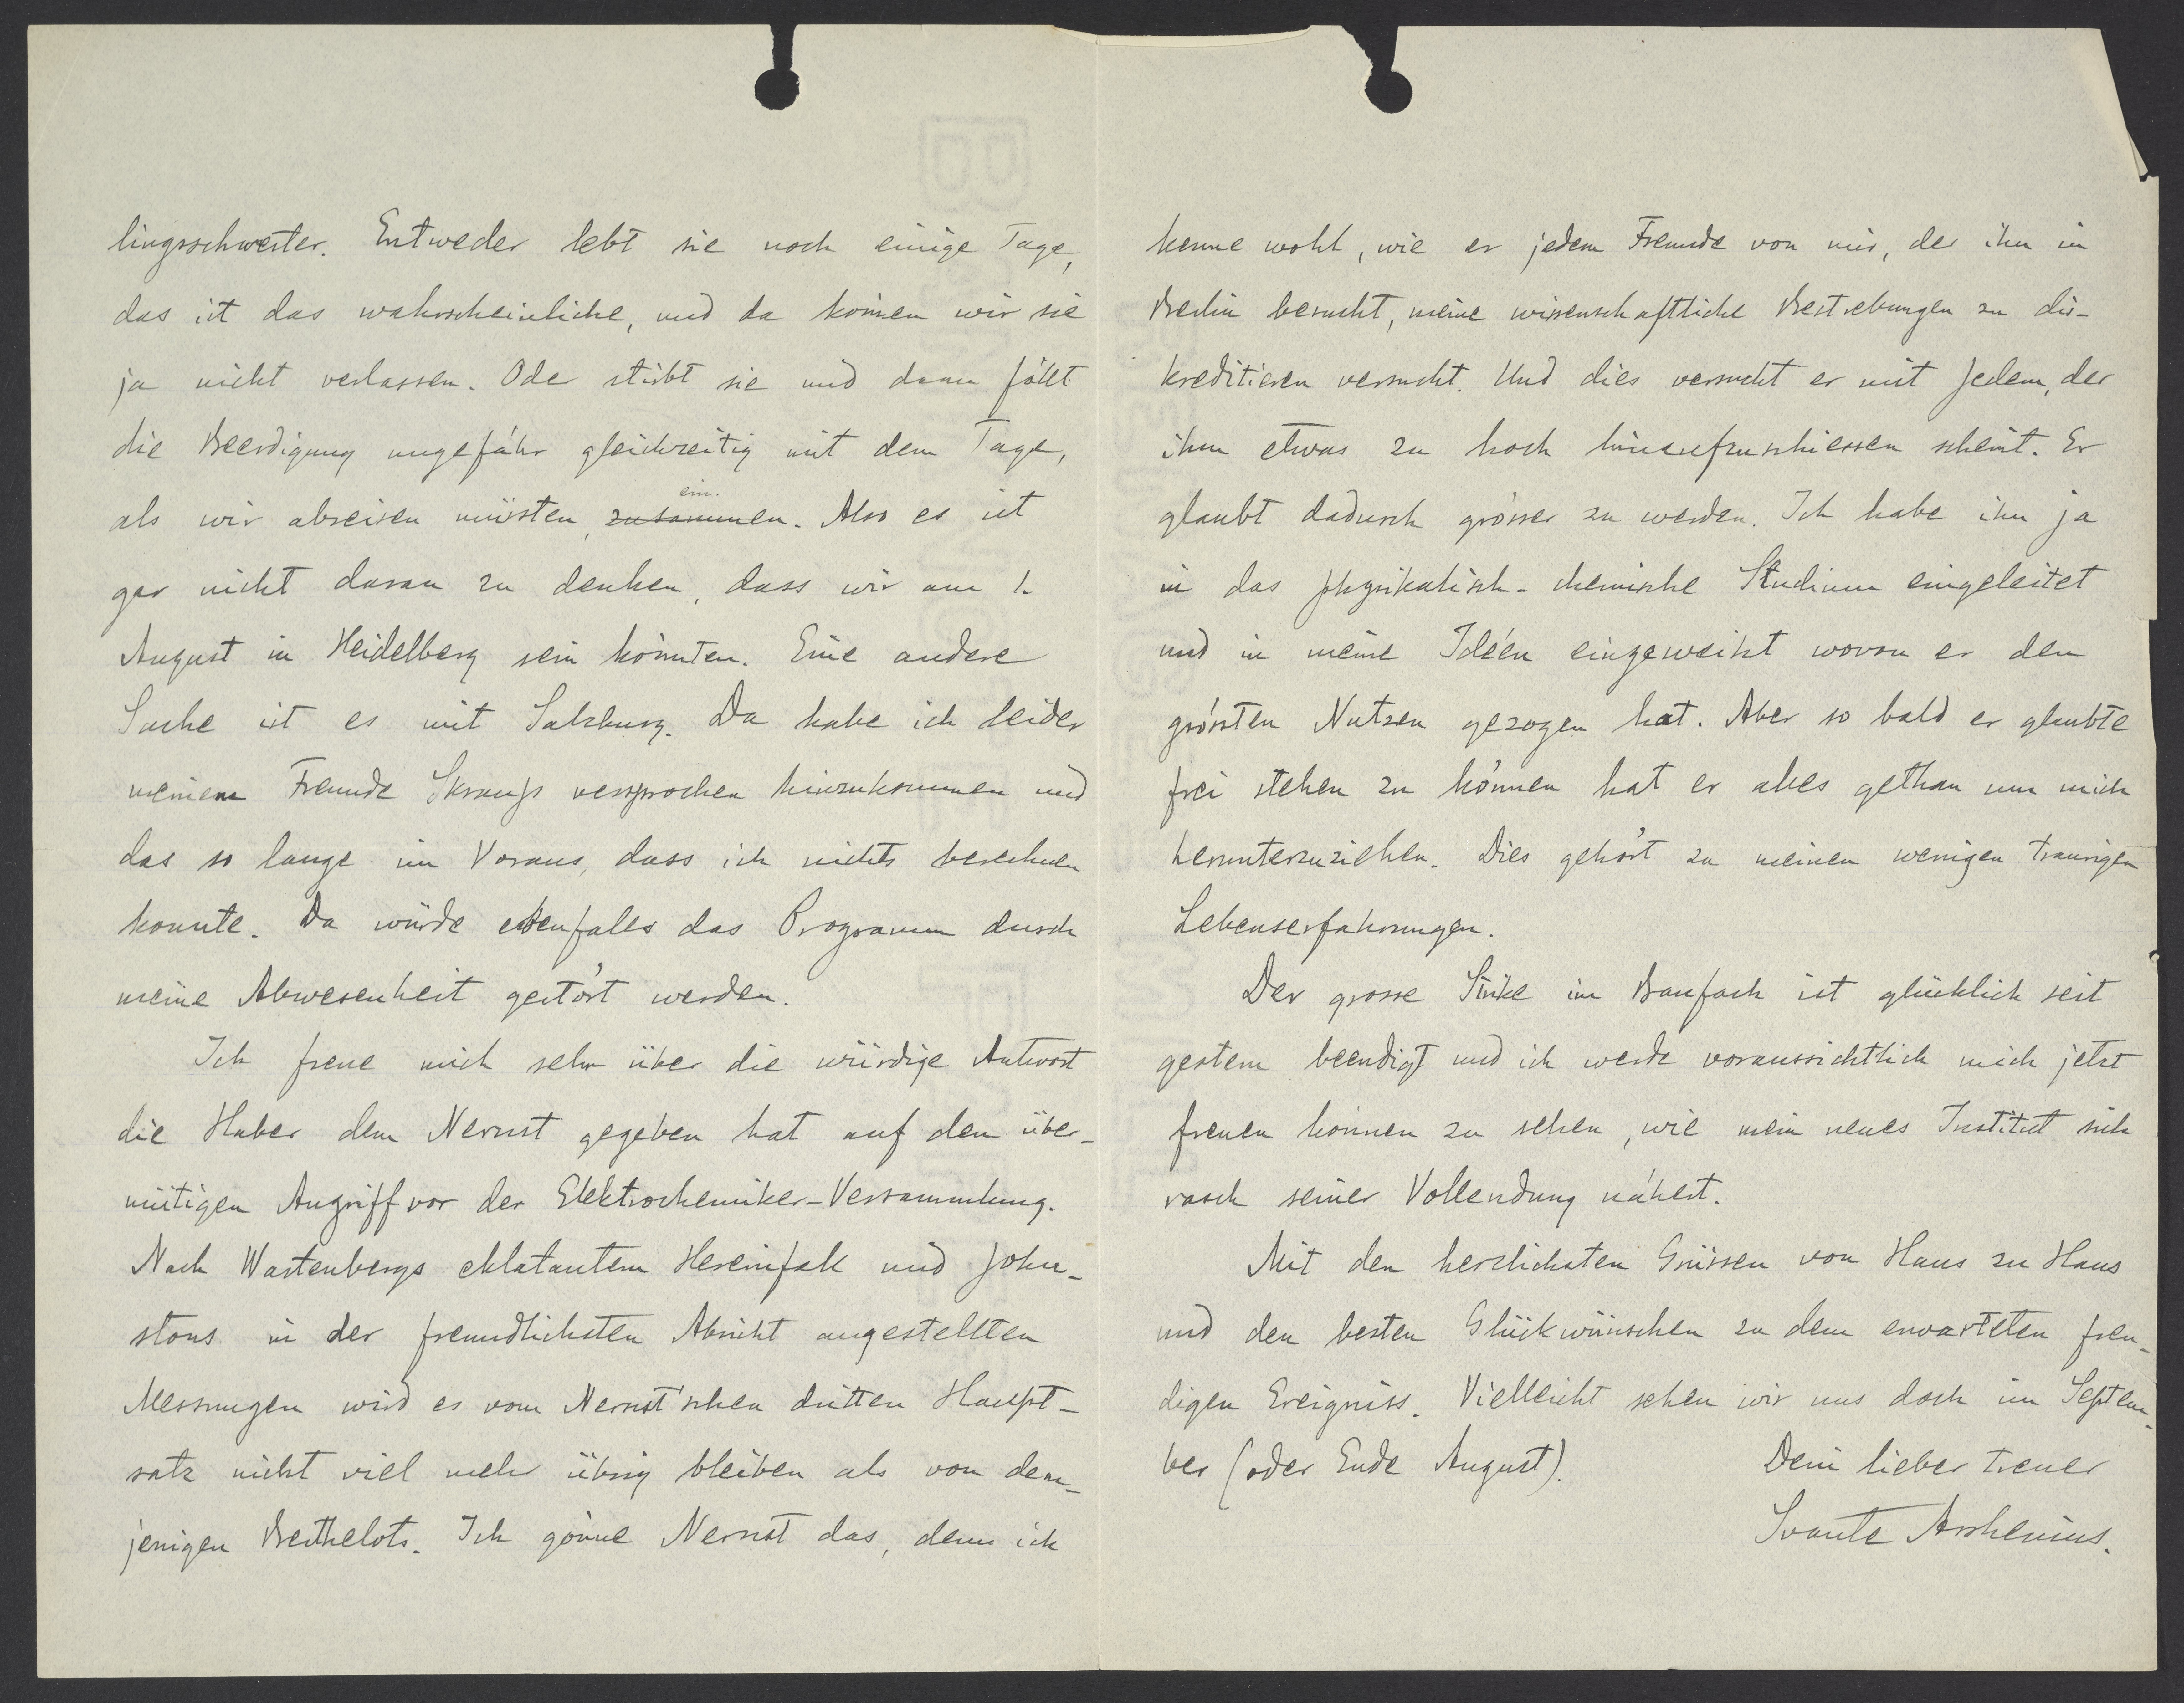 lingsschwester. Entweder lebt sie noch einige Tage,
das ist das wahrscheinliche, und da können wir sie
ja nicht verlassen. Oder stirbt sie und dann fällt
die Beerdigung ungefähr gleichzeitig mit dem Tage,
als wir abreisen müssten, zusammen. ein. Also es ist
gar nicht daran zu denken, dass wir am 1.
August in Heidelberg sein könnten. Eine andere
Sache ist es mit Salzburg. Da habe ich leider
meinem Freunde Skraup versprochen hinzukommen und
das so lange im Voraus, dass ich nichts berechnen
konnte. Da würde ebenfalls das Programm durch
meine Abwesenheit gestört werden.
Ich freue mich sehr über die würdige Antwort
die Haber dem Nernst gegeben hat auf den über-
mütigen Angriff vor der Elektrochemiker-Versammlung.
Nach Wartenbergs eklatantem Hereinfall und John-
stons in der freundlichsten Absicht angestellten
Messungen wird es vom Nernst'schen dritten Haupt-
satz nicht viel mehr übrig bleiben als von dem-
jenigen Berthelots. Ich gönne Nernst das, denn ich
kenne wohl, wie er jedem Freunde von mir, der ihn in
Berlin besucht, meine wissenschaftliche Bestrebungen zu dis-
kreditieren versucht. Und dies versucht er mit Jedem, der
ihm etwas zu hoch hinaufzuschiessen scheint. Er
glaubt dadurch grösser zu werden. Ich habe ihn ja
in das physikalisch-chemische Studium eingeleitet
und in meine Idéen eingeweiht wovon er den
grössten Nutzen gezogen hat. Aber so bald er glaubte
frei stehen zu können hat er alles gethan um mich
herunterzuziehen. Dies gehört zu meinen wenigen traurigen
Lebenserfahrungen.
Der grosse Strike im Baufach ist glücklich seit
gestern beendigt und ich werde voraussichtlich mich jetzt
freuen können zu sehen, wie mein neues Institut sich
rasch seiner Vollendung nähert.
Mit den herzlichsten Grüssen von Haus zu Haus
und den besten Glückwünschen zu dem erwarteten freu-
digen Ereigniss. Vielleicht sehen wir uns doch im Septem-
ber (oder Ende August). Dein lieber treuer
Svante Arrhenius.